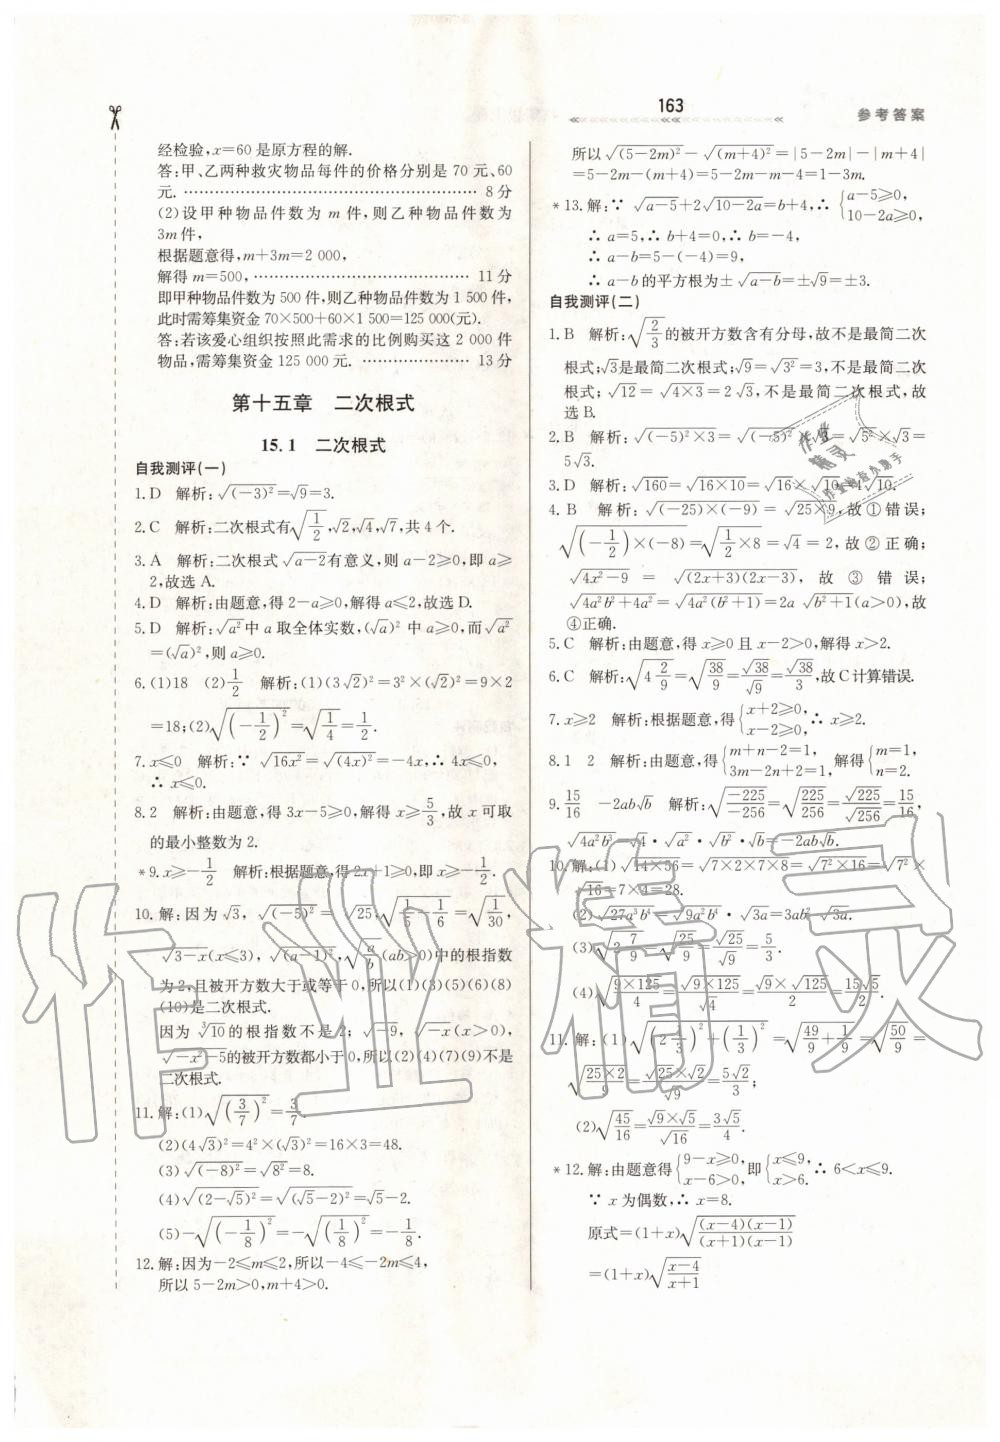 163
参考答案
经检验,x=60是原方程的解.
答:甲、乙两种救灾物品每件的价格分别是70元、60
元. ………………………………………… 8分
(2)设甲种物品件数为m件,则乙种物品件数为
3m件,
根据题意得,m+3m=2 000,
解得m=500, ……………………………… 11分
即甲种物品件数为500件,则乙种物品件数为1 500件,
此时需筹集资金70×500+60×1 500=125 000(元).
答:若该爱心组织按照此需求的比例购买这2 000件
物品,需筹集资金125 000元. ……………… 13分
第十五章 二次根式
15.1 二次根式
自我测评(一)
1.D 解析:√(-3)²=√9=3.
2.C 解析:二次根式有√(1/2),√2,√4,√7,共4个.
3.A 解析:二次根式√(a-2)有意义,则a-2≥0,即a≥
2,故选A.
4.D 解析:由题意,得2-a≥0,解得a≤2,故选D.
5.D 解析:√a²中a取全体实数,(√a)²中a≥0,而√a²
=(√a)²,则a≥0.
6.(1)18 (2)1/2 解析:(1)(3√2)²=3²×(√2)²=9×2
=18;(2)√(-1/2)²=√(1/4)=1/2.
7.x≤0 解析:∵ √(16x²)=√(4x)²=-4x,∴ 4x≤0,
∴ x≤0.
8.2 解析:由题意,得3x-5≥0,解得x≥5/3,故x可取
的最小整数为2.
*9.x≥-1/2 解析:根据题意,得2x+1≥0,即x≥-1/2.
10.解:因为√3,√(-5)²=√25,√(1/5-1/6)=√(1/30),
√(3-x)(x≤3),√(a-1)²,√(a/b)(ab>0)中的根指数
为2,且被开方数大于或等于0,所以(1)(3)(5)(6)(8)
(10)是二次根式.
因为∛10的根指数不是2;√-9,√-x(x>0),
√(-x²-5)的被开方数都小于0,所以(2)(4)(7)(9)不是
二次根式.
11.解:(1)√(3/7)²=3/7
(2)(4√3)²=4²×(√3)²=16×3=48.
(3)√(-8)²=√8²=8.
(4)√(2-√5)²=√(√5-2)²=√5-2.
(5)-√(-1/8)²=-√(1/8)²=-1/8.
12.解:因为-2≤m≤2,所以-4≤-2m≤4,
所以5-2m>0,m+4>0.
所以√(5-2m)²-√(m+4)²=|5-2m|-|m+4|
=5-2m-(m+4)=5-2m-m-4=1-3m.
*13.解:∵ √(a-5)+2√(10-2a)=b+4,∴ {a-5≥0, 10-2a≥0,
∴ a=5,∴ b+4=0,∴ b=-4,
∴ a-b=5-(-4)=9,
∴ a-b的平方根为±√(a-b)=±√9=±3.
自我测评(二)
1.B 解析:√(2/3)的被开方数含有分母,故不是最简二次
根式;√3是最简二次根式;√9=√3²=3,不是最简二次
根式;√12=√(4×3)=2√3,不是最简二次根式,故
选B.
2.B 解析:√((-5)²×3)=√(-5)²×√3=√5²×√3=
5√3.
3.D 解析:√160=√(16×10)=√16×√10=4√10.
4.B 解析:√((-25)×(-9))=√(25×9),故①错误;
√((-1/2)×(-8))=√(1/2×8)=√4=2,故②正确;
√(4x²-9)=√((2x+3)(2x-3)),故③错误;
√(4a²b²+4a²)=√(4a²(b²+1))=2a√(b²+1)(a>0),故
④正确.
5.C 解析:由题意,得x≥0且x-2>0,解得x>2.
6.C 解析:√(4 2/9)=√(38/9)=√38/√9=√38/3,故C计算错误.
7.x≥2 解析:根据题意,得{x+2≥0, x-2≥0,∴ x≥2.
8.1 2 解析:由题意,得{m+n-2=1, 3m-2n+2=1,解得{m=1, n=2.
9.15/16 -2ab√b 解析:√(-225/-256)=√(225/256)=√225/√256=15/16,
√(4a²b³)=√4·√a²·√b²·√b=-2ab√b.
10.解:(1)√(14×56)=√(7×2×7×8)=√(7²×16)=√7²×
√16=7×4=28.
(2)√(27a³b⁴)=√(9a²b⁴)·√3a=3ab²√3a.
(3)√(2 7/9)=√(25/9)=√25/√9=5/3.
(4)√(9×125/4)=√(9×125)/√4=√9×√125/2=15√5/2.
11.解:(1)√((2 1/3)²+(1/3)²)=√(49/9+1/9)=√(50/9)=
√(25×2/9)=√25×√2/√9=5√2/3;
(2)√(45/16)=√9×√5/√16=3√5/4.
*12.解:由题意得{9-x≥0, x-6>0,即{x≤9, x>6.∴ 6<x≤9.
∵ x为偶数,∴ x=8.
原式=(1+x)√((x-4)(x-1)/(x+1)(x-1))
=(1+x)√((x-4)/(x+1))
作业精灵